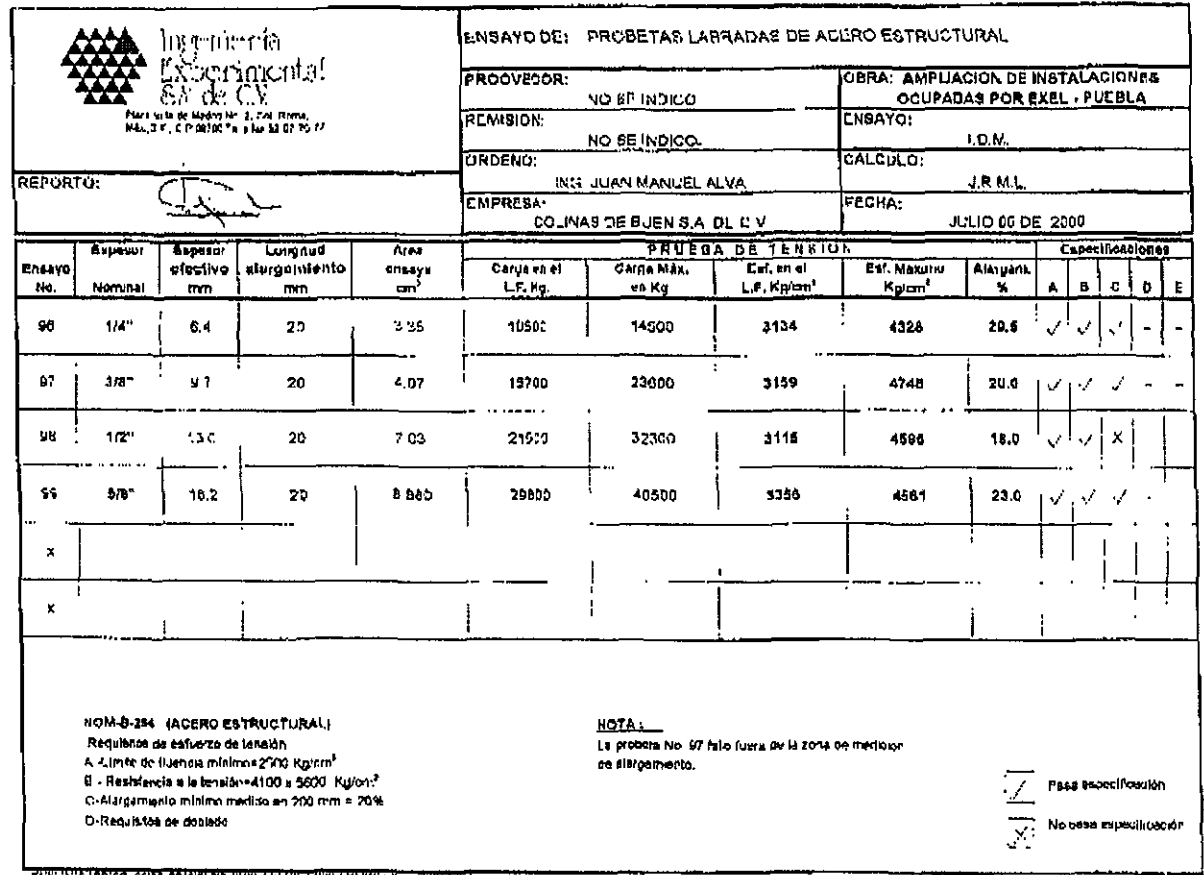 Ingeniería
Experimental
S.A. de C.V.
ENSAYO DE: PROBETAS LABRADAS DE ACERO ESTRUCTURAL
PROOVEDOR:
NO SE INDICO
OBRA: AMPLIACION DE INSTALACIONES
OCUPADAS POR EXEL - PUEBLA
REMISION:
NO SE INDICO.
ENSAYO:
I.D.M.
ORDENO:
ING. JUAN MANUEL ALVA
CALCULO:
J.R.M.L.
REPORTO:
EMPRESA:
COLINAS DE BUEN S.A. DE C.V
FECHA:
JULIO 06 DE 2000
Ensayo No. Espesor Nominal Espesor efectivo mm Longitud alargamiento mm Area ensaye cm² PRUEBA DE TENSION Especificaciones
Carga en el L.F. Kg. Carga Máx. en Kg Esf. en el L.F. Kg/cm² Esf. Maximo Kg/cm² Alargam. % A B C D E
96 1/4" 6.4 20 3.35 10500 14500 3134 4328 29.5 ✓ ✓ ✓ - -
97 3/8" 9.7 20 4.97 15700 23600 3159 4748 20.0 ✓ ✓ ✓ - -
98 1/2" 13.0 20 7.03 21900 32300 3115 4595 18.0 ✓ ✓ X
99 5/8" 16.2 20 8.880 29800 40500 3356 4561 23.0 ✓ ✓ ✓ -
x
x
NOM-B-254 (ACERO ESTRUCTURAL)
Requisitos de esfuerzo de tensión
A.-Limite de fluencia mínimo=2500 Kg/cm²
B - Resistencia a la tensión=4100 a 5600 Kg/cm²
C-Alargamiento mínimo medido en 200 mm = 20%
D-Requisitos de doblado
NOTA:
La probeta No. 97 fallo fuera de la zona de medicion
de alargamiento.
✓ Pasa especificación
X No pasa especificación